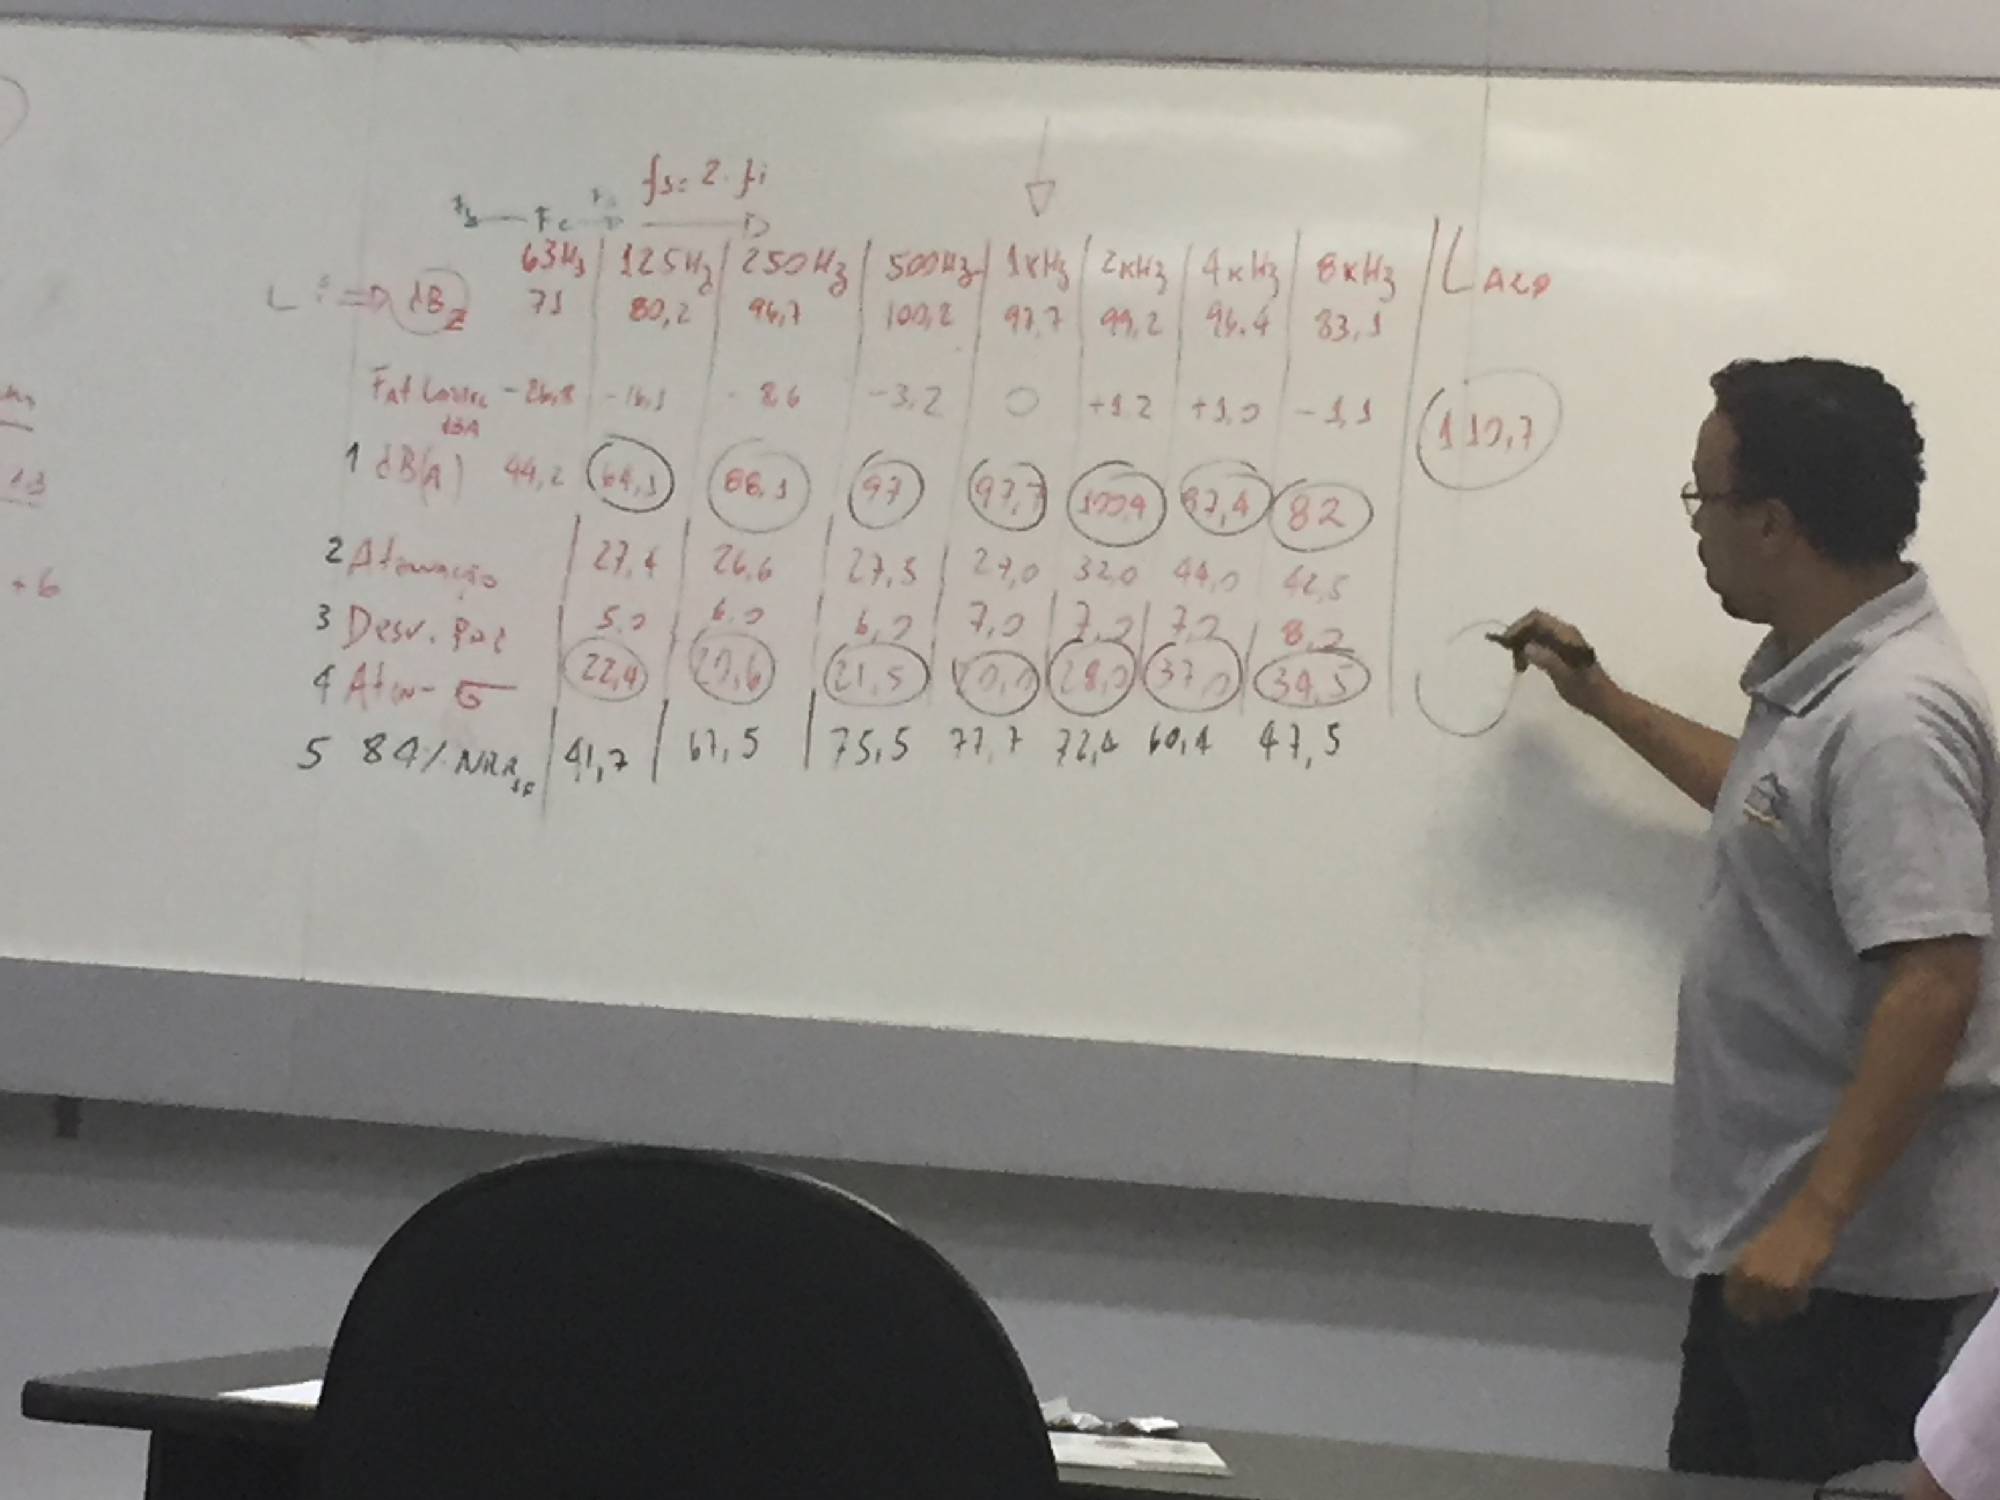 fs = 2. fi
Fc
63Hz 125Hz 250Hz 500Hz 1KHz 2KHz 4KHz 8KHz
L i => dBz 71 80,2 96,7 100,2 97,7 99,2 96.4 83,1
Fat -26,8 -16,1 -8 6 -3,2 0 +1 2 +1,0 -1,1
dBA
110,7
1 dB(A) 44,2 64,1 88,1 97 97,7 100,4 97,4 82
13
2 Atenuação 27,4 26,6 27,5 27,0 32,0 44,0 42,5
+6
3 Desv. Pad 5,0 6,0 6,0 7,0 7,0 7,0 8,2
4 Aten- σ 22,4 20,6 21,5 20,0 28,0 37,0 34,5
5 84% NRRsf 41,7 67,5 75,5 77,7 72,4 60,4 47,5